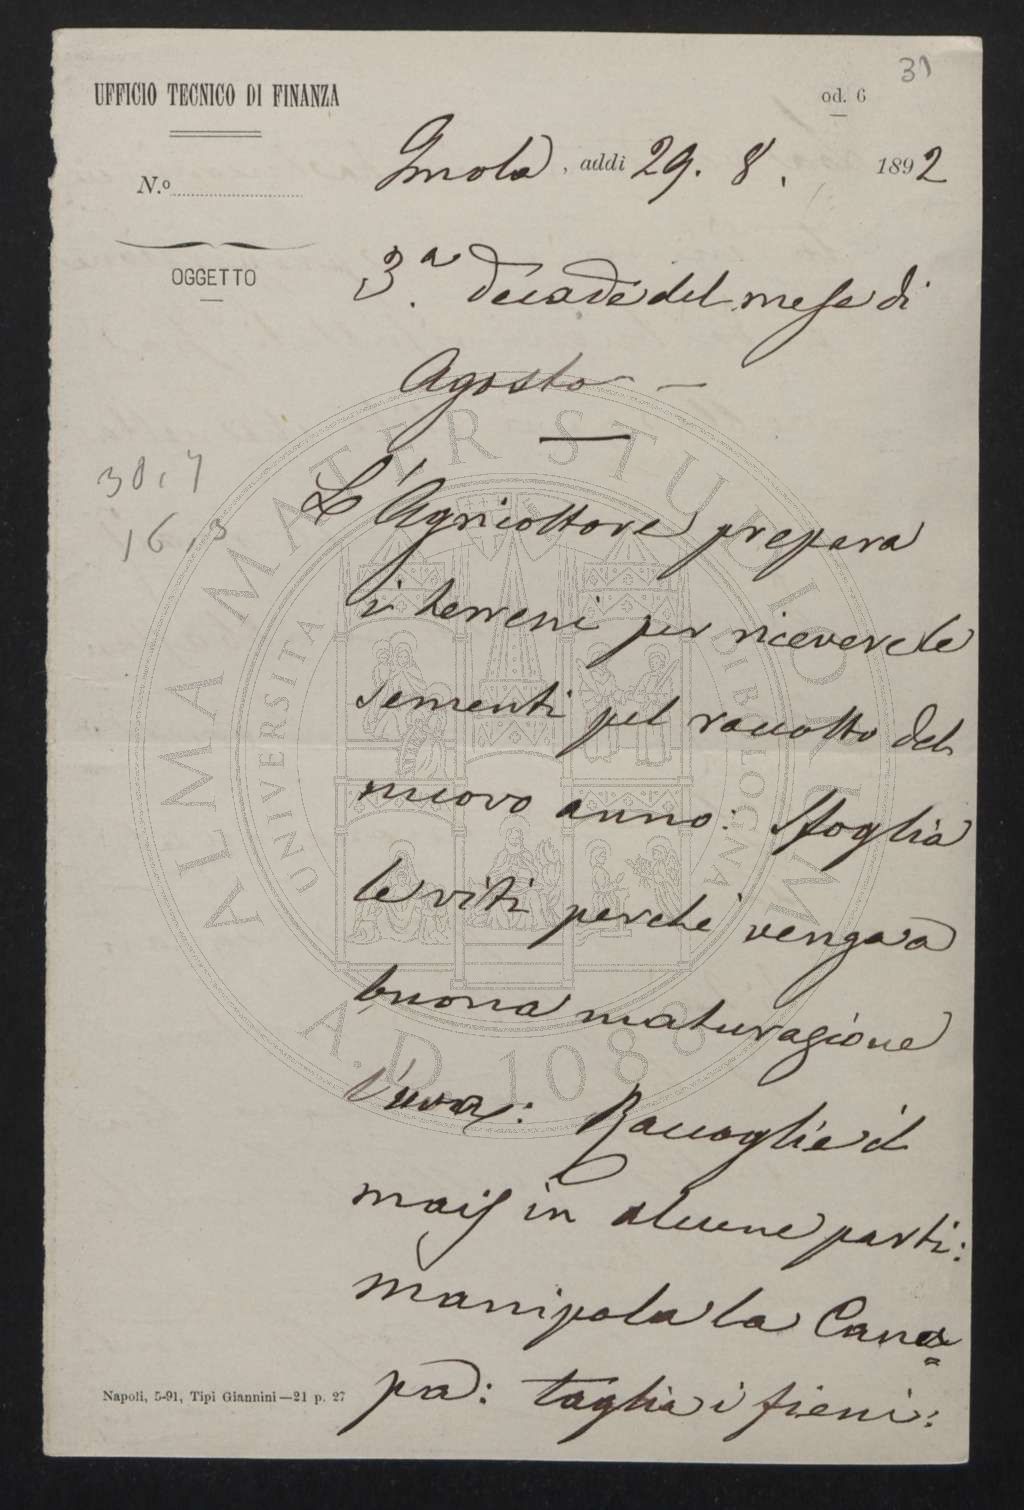 31
UFFICIO TECNICO DI FINANZA
od. 6
Imola, addì 29. 8. 1892
N.º
OGGETTO
3.ª decade del mese di
Agosto —
30,7
16,3
L'Agricoltore prepara
i terreni per ricevere le
sementi pel raccolto del
nuovo anno: Sfoglia
le viti perchè venga a
buona maturazione
l'uva: Raccoglie il
mais in alcune parti:
manipola la Cana=
pa: taglia i fieni:
Napoli, 5-91, Tipi Giannini—21 p. 27
ALMA MATER STUDIORUM
UNIVERSITA DI BOLOGNA
A.D. 1088